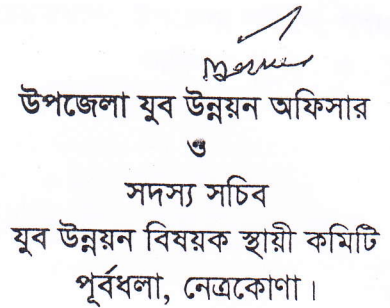 উপজেলা যুব উন্নয়ন অফিসার
ও
সদস্য সচিব
যুব উন্নয়ন বিষয়ক স্থায়ী কমিটি
পূর্বধলা, নেত্রকোণা।